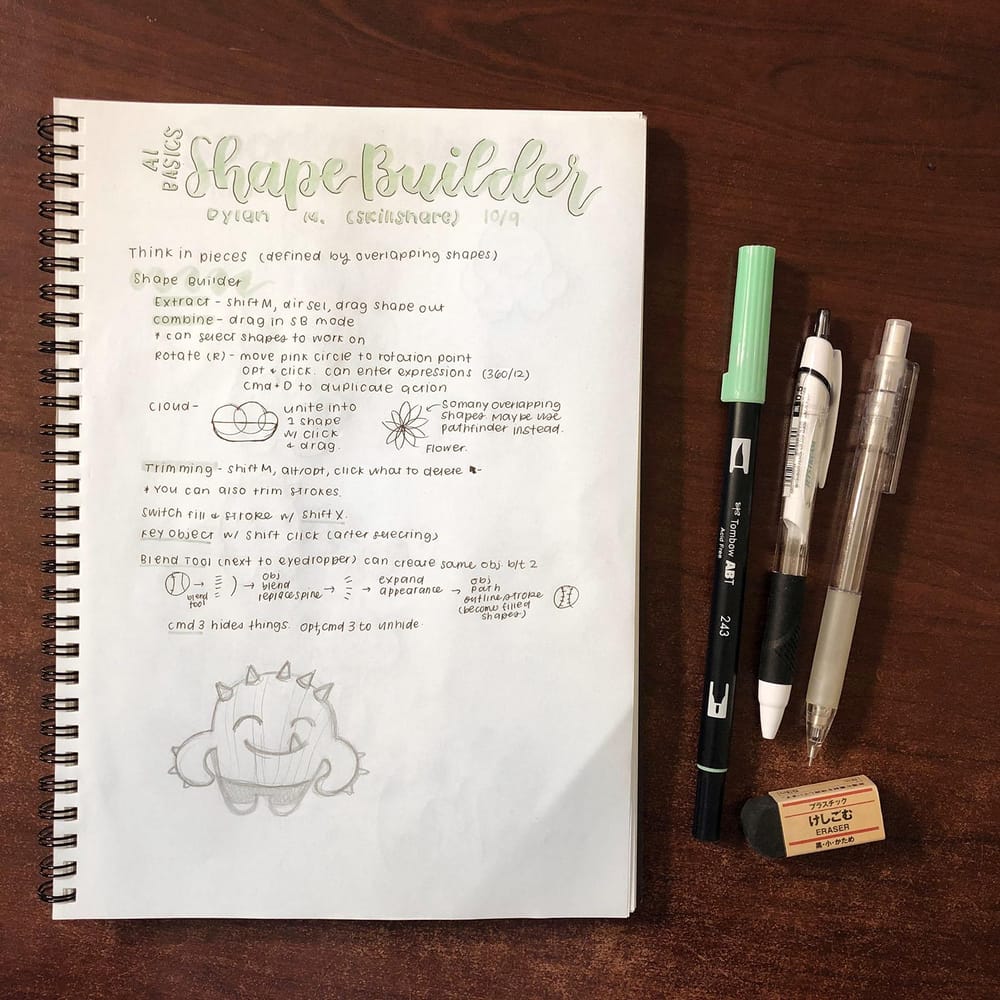 AI BASICS
Shape Builder
Dylan M. (Skillshare) 10/9
Think in pieces (defined by overlapping shapes)
Shape Builder
Extract - shift M, dir sel, drag shape out
combine - drag in SB mode
* can select shapes to work on
Rotate (R) - move pink circle to rotation point
opt + click. can enter expressions (360/12)
cmd + D to duplicate action
cloud -
unite into
1 shape
w/ click
& drag.
← So many overlapping
shapes maybe use
pathfinder instead.
flower.
Trimming - shift M, alt/opt, click what to delete
* You can also trim strokes.
Switch fill & stroke w/ Shift X.
Key Object w/ Shift click (after selecting)
Blend Tool (next to eyedropper) can create same obj b/t 2
→ blend tool
→ obj
blend
replace spine
→ → expand
appearance
→ obj
path
outline stroke
(become filled
shapes)
cmd 3 hides things. opt, cmd 3 to unhide.
Tombow ABT
Acid Free
243
プラスチック
けしごむ
ERASER
黒・小・かため